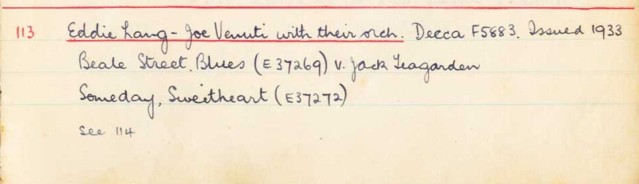 113 Eddie Lang - Joe Venuti with their orch. Decca F5883. Issued 1933
Beale Street Blues (E37269) v. Jack Teagarden
Someday, Sweetheart (E37272)
See 114